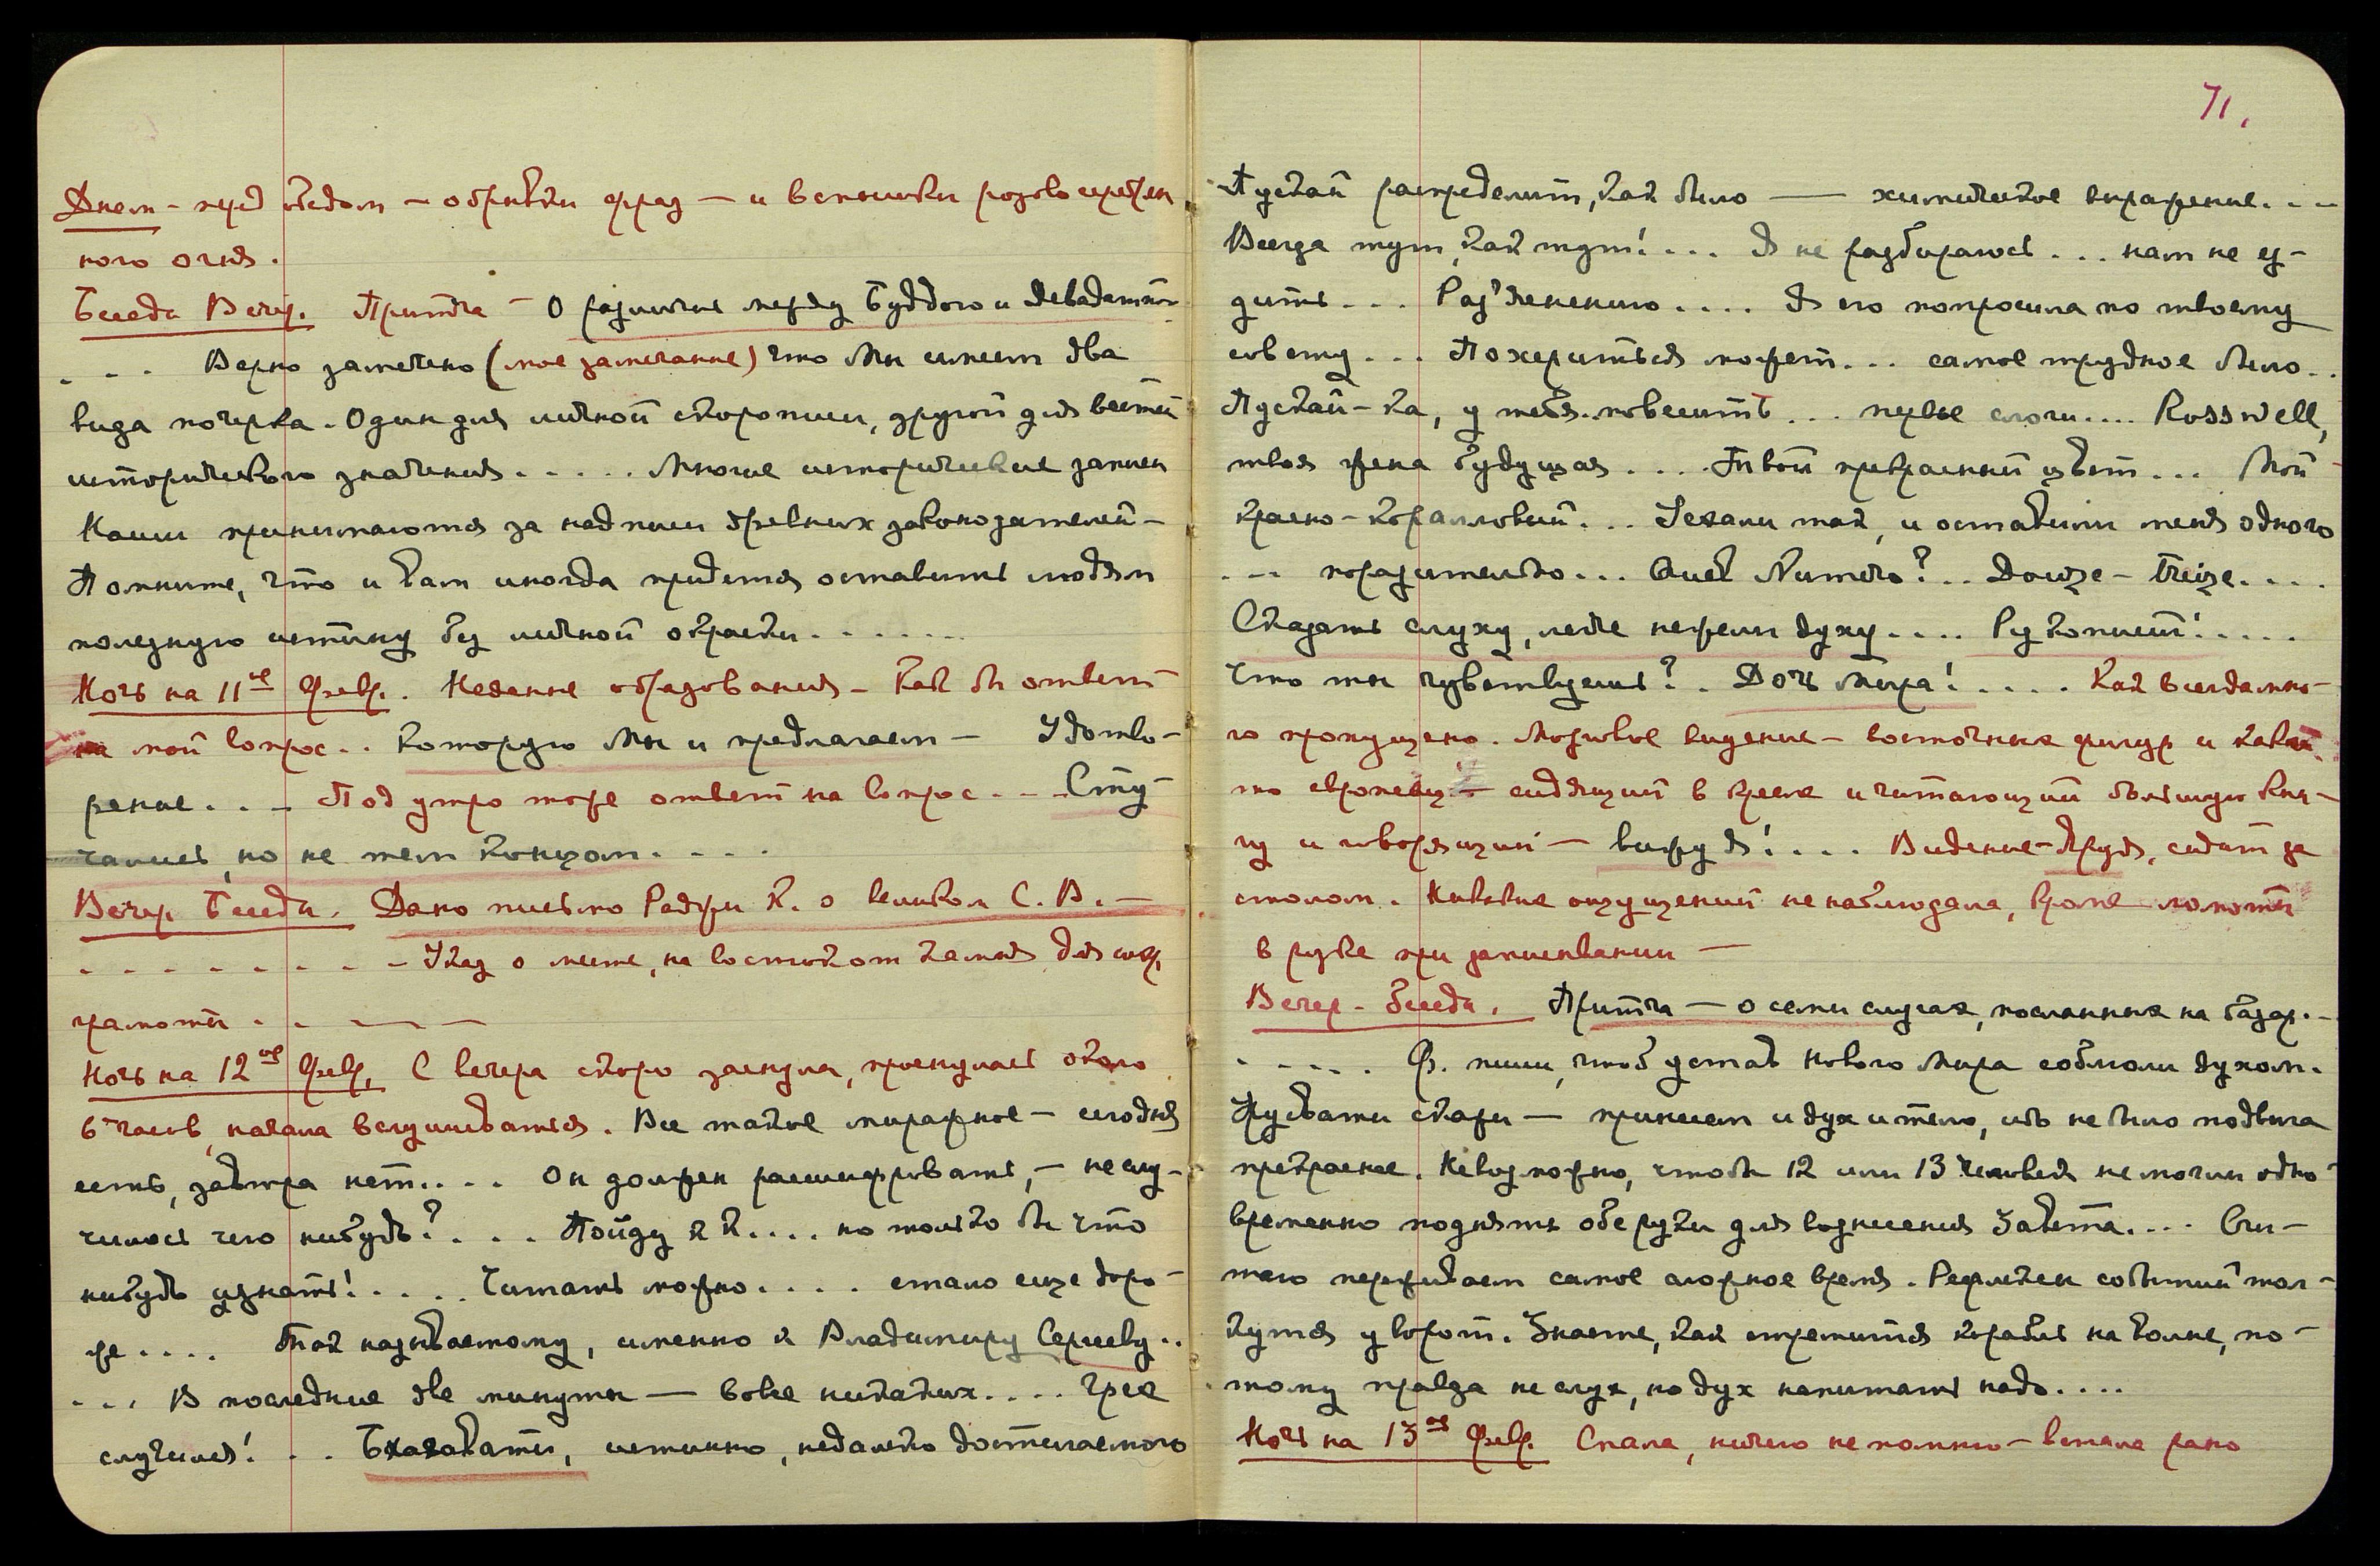 Днем - перед обедом - обрывки фраз - и вспышки розово серебрян
ного огня.
Беседа Вечер. Притча - О различие между Буддою и Девадаттою
. . . Верно замечено (мое замечание) что Мы имеем два
вида почерка. Один для личной скорописи, другой для вестей
исторического значения. . . . . Многие исторические записи
Наши принимаются за надписи древних законодателей -
Помните, что и вам иногда придется оставить людям
полезную истину без личной окраски. . . . . . .
Ночь на 11ое Февр. Неданне образования - Как бы ответ
на мой вопрос . . Которую Мы и предлагаем - Удотво-
рение. . . - Под утро тоже ответ на вопрос. - - Сту-
чались, но не тем концом. . . .
Вечер Беседы. Дано письмо Раджи К. о великом С. В. -
- - - - - - - - - Указ о месте, на восток от камня для сокр.
грамоты . - - -
Ночь на 12ое Февр. С вечера скоро заснула, проснулась около
6 часов, начала вслушиваться. Все такое миражное - сегодня
есть, завтра нет. . . . Он должен расшифровать, - не слу-
чилось чего нибудь? . . . Пойду к К. . . . но только бы что
нибудь узнать! . . . . Читать можно. . . . стало еще доро-
же. . . . Так называемому, именно к Владимиру Сергееву . .
. . . В последние две минуты - вовсе никаких. . . . Грех
случился! . . . Бхагавати, истинно, недалеко достигаемого
71.
Пускай распределит, как было — химическое выражение. . -
Всегда тут, как тут! . . . Я не разбираюсь . . . нам не ез-
дить . . . Раз'яснению. . . . Я его попросила по твоему
совету . . . Похерить может. . . самое трудное было . .
Пускай-ка, у тебя повесить . . . первые слоги. . . . Rosswell,
твоя жена будущая . . . Твой прекрасный цвет . . . Мой
красно-коралловый . . . Уехали так, и оставили меня одного
. - - поразительно . . . Quel Numéro? . . Douze - treize. . . .
Сказать слуху, легче нежели духу. . . . Рукопись! . . . . .
Что ты чувствуешь? . . Дочь Мира! . . . . Как всегда мно-
го пропущено. Мозговое видение - восточных фигур и какой
то европеец - сидящий в кресле и читающий большую кни-
гу и говорящий - вижу я! . . . Видение - Друзья, сидят за
столом. Никаких ощущений не наблюдала, кроме ломоты
в руке при записывании -
Вечер - беседы. Притча - о семи слугах, посланных на базар. -
- - - . Ф. пиши, чтоб устав нового Мира соблюли духом.
Друзьями скажи - принесем и дух и тело, ибо не было подвига
прекраснее. Невозможно, чтобы 12 или 13 человек не могли одно-
временно поднять обе руки для вознесения Завета. . . . Счи-
таю переживаем самое сложное время. Рефлексы событий тол-
кутся у ворот. Знаете, как стремится корабль на волне, по-
тому правда не слух, но дух напитать надо. . . .
Ночь на 13ое Февр. Спала, ничего не помню - встала рано